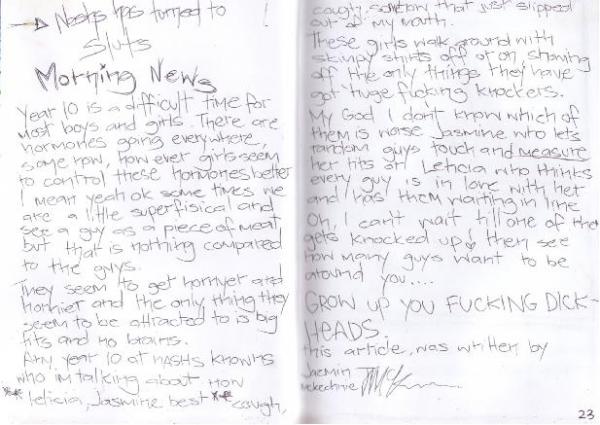 → Nashs has turned to !
Sluts
Morning News
Year 10 is a difficult time for
most boys and girls. There are
hormones going everywhere,
some how, how ever girls seem
to control these hormones better
I mean yeah ok some times we
are a little superfisical and
see a guy as a piece of meat
but that is nothing compared
to the guys.
They seem to get hornyer and
hornier and the only thing they
seem to be attracted to is big
tits and no brains.
Any year 10 at NASHS knowns
who im talking about
leticia, Jasmine best cough,
cough, sorry that just slipped
out of my mouth.
These girls walk around with
skimpy shirts off or on, showing
off the only things they have
got "huge fucking knockers.
My God I don't know which of
them is worse Jasmine who lets
random guys touch and measure
her tits or Leticia who thinks
every guy is in love with her
and has them waiting in line
Oh, I can't wait till one of the
gets knocked up! then see
how many guys want to be
around you....
GROW UP YOU FUCKING DICK-
HEADS.
this article was written by
Mckechnie
23